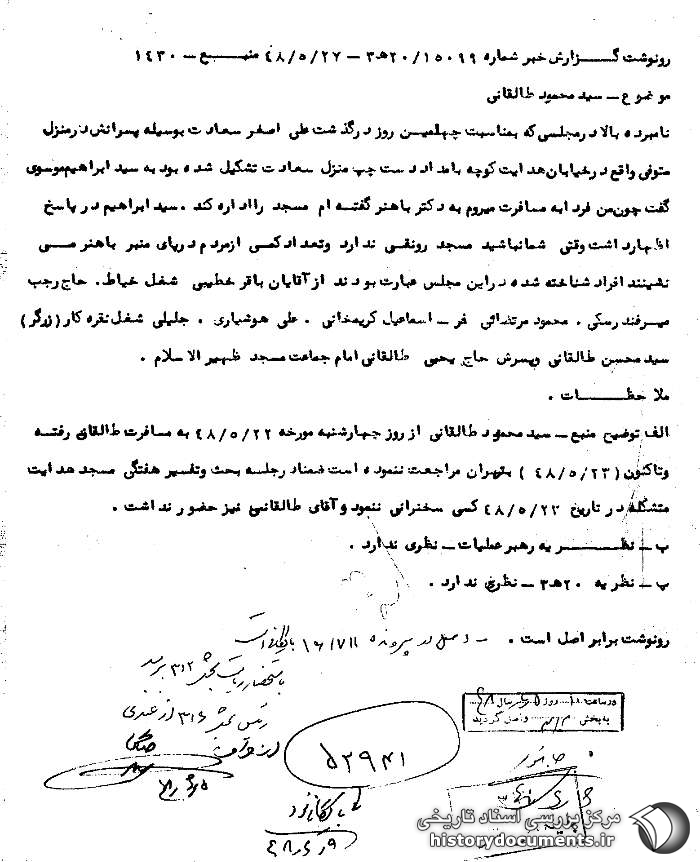 رونوشت گزارش خبر شماره ۲۰/۱۵۰۹۹ ه‍ ۳ – ۴۸/۵/۲۷ منبع – ۱۴۳۰
موضوع – سید محمود طالقانی
نامبرده بالا در مجلسی که بمناسبت چهلمین روز درگذشت علی اصغر سعادت بوسیله پسرانش در منزل
متوفی واقع در خیابان هدایت کوچه بامداد دست چپ منزل سعادت تشکیل شده بود به سید ابراهیم موسوی
گفت چون من فردا به مسافرت میروم به دکتر باهنر گفته ام مسجد را اداره کند . سید ابراهیم در پاسخ
اظهار داشت وقتی شما نباشید مسجد رونقی ندارد و تعداد کمی از مردم در پای منبر باهنر می
نشینند افراد شناخته شده در این مجلس عبارت بودند از آقایان باقر خطیبی شغل خیاط . حاج رجب
میرفندرسکی . محمود مرتضائی فر – اسماعیل کریمخانی . علی هوشیاری . جلیلی شغل نقره کار (زرگر)
سید محسن طالقانی و پسرش حاج یحیی طالقانی امام جماعت مسجد ظهیر الاسلام .
ملاحظات .
الف توضیح منبع – سید محمود طالقانی از روز چهارشنبه مورخه ۴۸/۵/۲۲ به مسافرت طالقان رفته
و تاکنون (۴۸/۵/۲۳) بتهران مراجعت ننموده است ضمنا در جلسه بحث و تفسیر هفتگی مسجد هدایت
متشکله در تاریخ ۴۸/۵/۲۳ کسی سخنرانی ننمود و آقای طالقانی نیز حضور نداشت .
ب – نظریه رهبر عملیات – نظری ندارد .
پ – نظریه ۲۰ ه‍ ۳ – نظری ندارد .
رونوشت برابر اصل است . – اصل در پرونده
۳۱۲
رئیس بخش ۳۱۶
در ساعت روز سال
به بخش ۳۱۲ واصل گردید
۵۲۹۴۱
بایگانی شود
مرکز بررسی اسناد تاریخی
historydocuments.ir